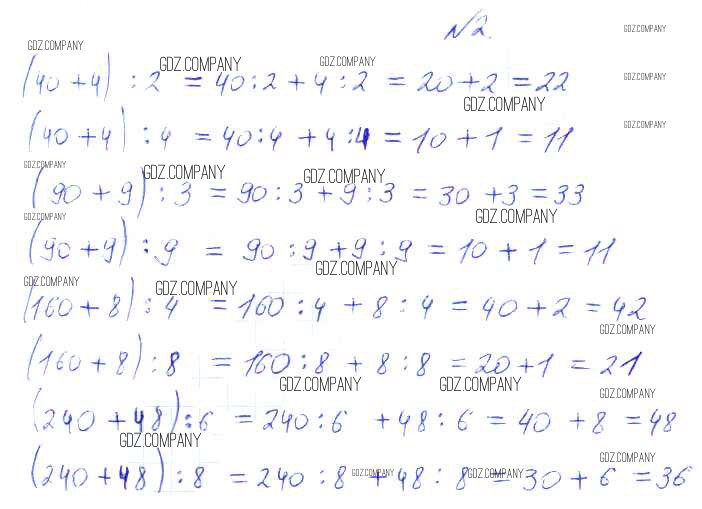 №2.
GDZ.COMPANY
GDZ.COMPANY GDZ.COMPANY GDZ.COMPANY
(40+4) : 2 = 40:2 + 4:2 = 20+2 = 22
GDZ.COMPANY
GDZ.COMPANY
GDZ.COMPANY
(40+4) : 4 = 40:4 + 4:4 = 10+1 = 11
GDZ.COMPANY
GDZ.COMPANY GDZ.COMPANY GDZ.COMPANY
(90+9) : 3 = 90:3 + 9:3 = 30+3 = 33
GDZ.COMPANY GDZ.COMPANY
(90+9) : 9 = 90:9 + 9:9 = 10+1 = 11
GDZ.COMPANY
GDZ.COMPANY GDZ.COMPANY
(160+8) : 4 = 160:4 + 8:4 = 40+2 = 42
GDZ.COMPANY
(160+8) : 8 = 160:8 + 8:8 = 20+1 = 21
GDZ.COMPANY GDZ.COMPANY GDZ.COMPANY
(240+48) : 6 = 240:6 + 48:6 = 40+8 = 48
GDZ.COMPANY
GDZ.COMPANY
(240+48) : 8 = 240:8 + 48:8 = 30+6 = 36
GDZ.COMPANY GDZ.COMPANY